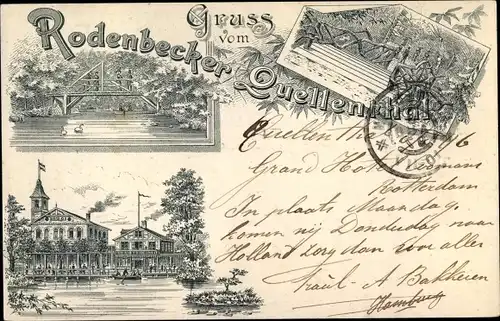 Gruss
vom
Rodenbecker
Quellenthal
Grand Hotel
Rotterdam
In plaats Maandag
komen wij Donderdag naar
Holland zorg dan voor alles
A Bakkeren
Hamburg